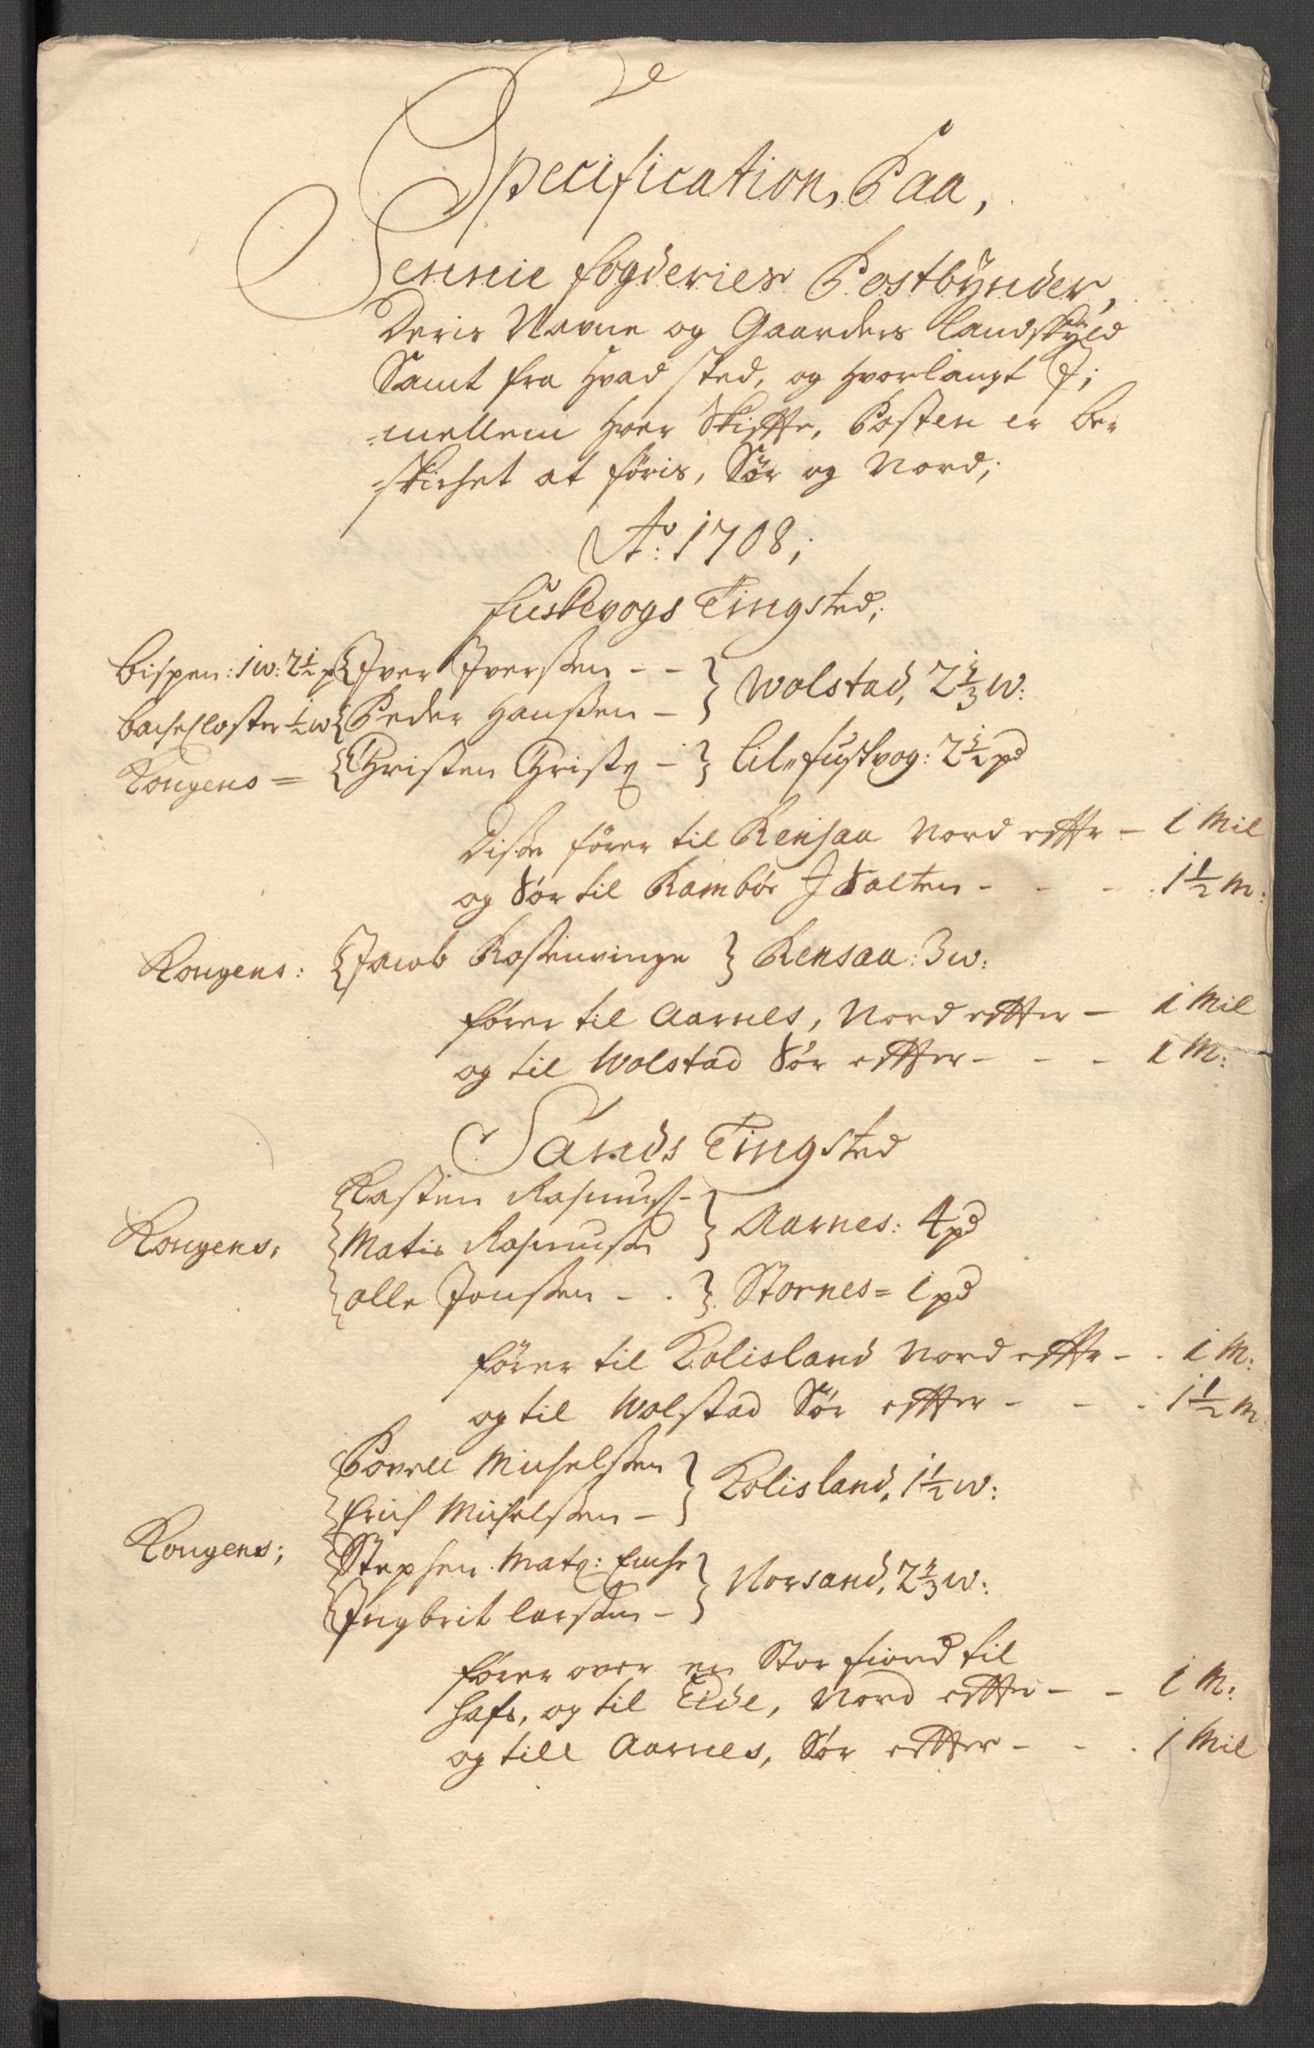 Specification, Paa,
Sennie fogderies Postbynder,
Deris Navne og Gaarders landskyld
Samt fra Hvad sted, og Hvorlangt J;
mellem Hver Skiffte, Posten er be-
skichet at føris, Sør og Nord;
Ao: 1708;
fuskevogs Tingsted;
bispen: 1 w: 2½ p {Jver Jverssen - - } Wolstad, 2⅓ w:
bachecloster ½ w {Peder Hanssen -
Kongens = {Christen Christ - } lile fuskvog: 2½ pd
Disse fører til Rensaa Nord effter - 1 Mil
og Sør til Rambør J Salten - - - 1½ M:
Kongens: {Jacob Rossenvinge } Rensaa: 3 w:
fører til Aarnes, Nord effter - 1 Mil
og til Wolstad Sør effter - - - 1 M:
Sands Tingsted
{Kasten Rasmuss -
Kongens; {Matis Rasmussen } Aarnes: 4 pd
{olle Jonssen - - } Stornes = 1 pd
fører til Kolisland Nord effter - - 1 M:
og til Wolstad Sør effter - - - 1½ M:
{Povell Michelssen } Kolisland, 1½ w:
{Erich Michelssen -
Kongens; {Stephen Mat: Enche } Norsand, 2⅓ w:
{Jngbrit larssen -
fører over en Stor fiord til
hafs, og til Eide, Nord effter - - 1 M:
og till Aarnes, Sør effter - - - 1 Mil